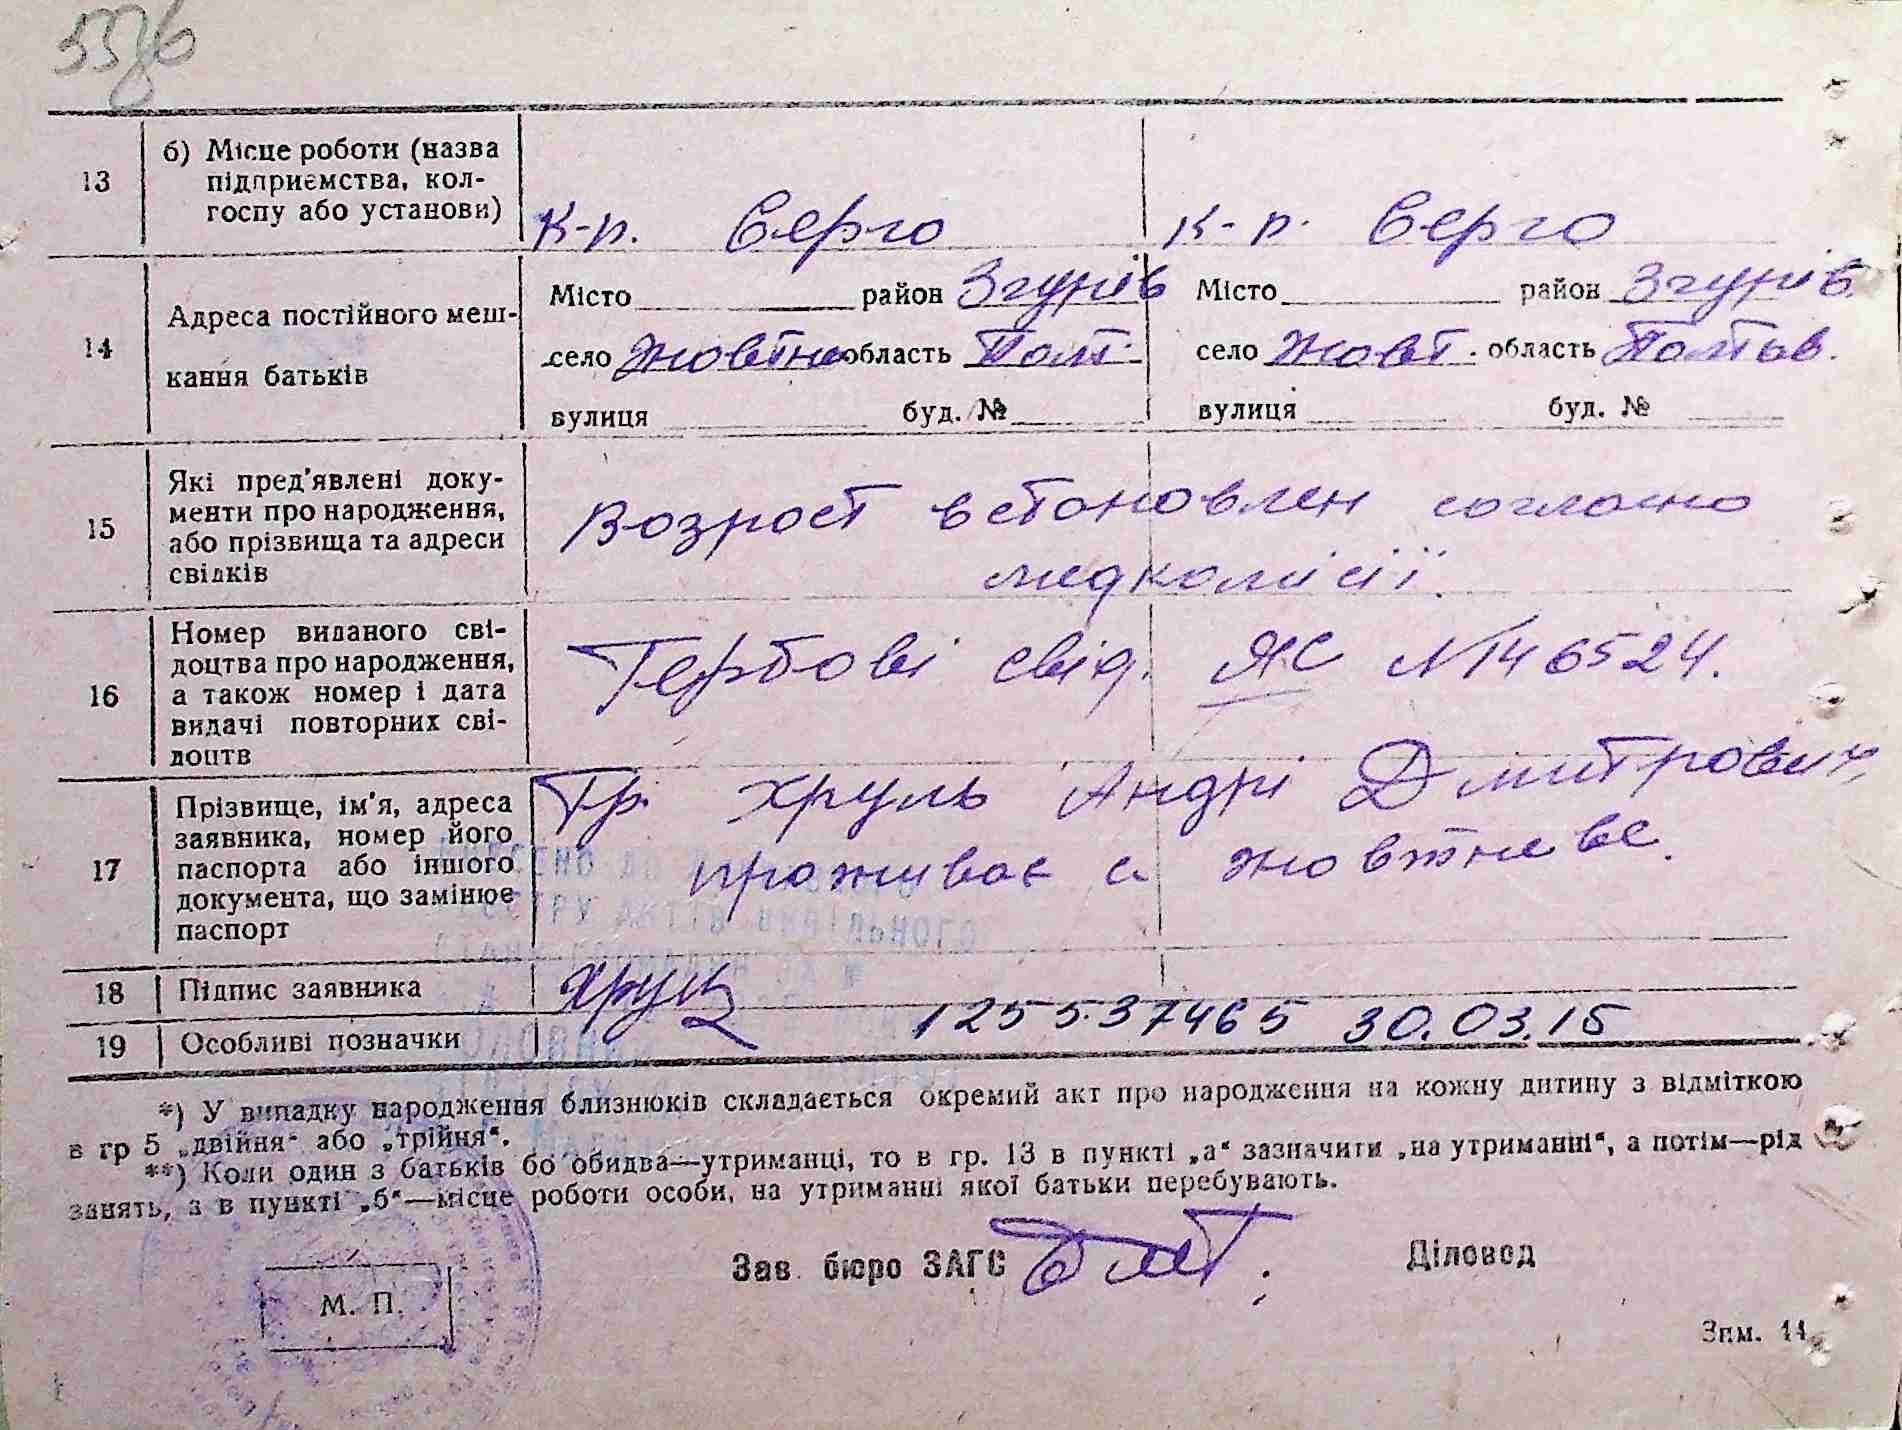 13
б) Місце роботи (назва
підприємства, кол-
госпу або установи)
к-п. Серго
к-п. Серго
14
Адреса постійного меш-
кання батьків
Місто район Згурів
село Жовтне область Полт.
вулиця буд. №
Місто район Згурів.
село Жовт. область Полтав.
вулиця буд. №
15
Які пред'явлені доку-
менти про народження,
або прізвища та адреси
свідків
Возраст встановлен согласно
медкомісії.
16
Номер виданого сві-
доцтва про народження,
а також номер і дата
видачі повторних сві-
доцтв
Гербові свід. ЯС №146524.
17
Прізвище, ім'я, адреса
заявника, номер його
паспорта або іншого
документа, що замінює
паспорт
Гр. Хруль Андрі Дмитрович
проживає с Жовтневе.
18
Підпис заявника
19
Особливі позначки
125537465 30.03.15
*) У випадку народження близнюків складається окремий акт про народження на кожну дитину з відміткою
в гр 5 „двійня“ або „трійня“.
**) Коли один з батьків бо обидва—утриманці, то в гр. 13 в пункті „а“ зазначити „на утриманні“, а потім—рід
занять, а в пункті „б“—місце роботи особи, на утриманні якої батьки перебувають.
Зав. бюро ЗАГС
Діловод
М. П.